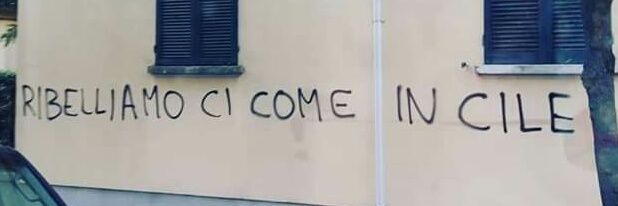 RIBELLIAMO CI COME IN CILE